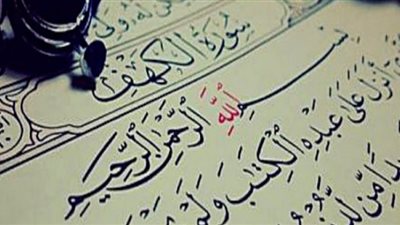 سُورَةُ الكَهْفِ
بِسْمِ اللَّهِ الرَّحْمَٰنِ الرَّحِيمِ
أَنْزَلَ عَلَىٰ عَبْدِهِ الْكِتَٰبَ وَلَمْ
مِّن